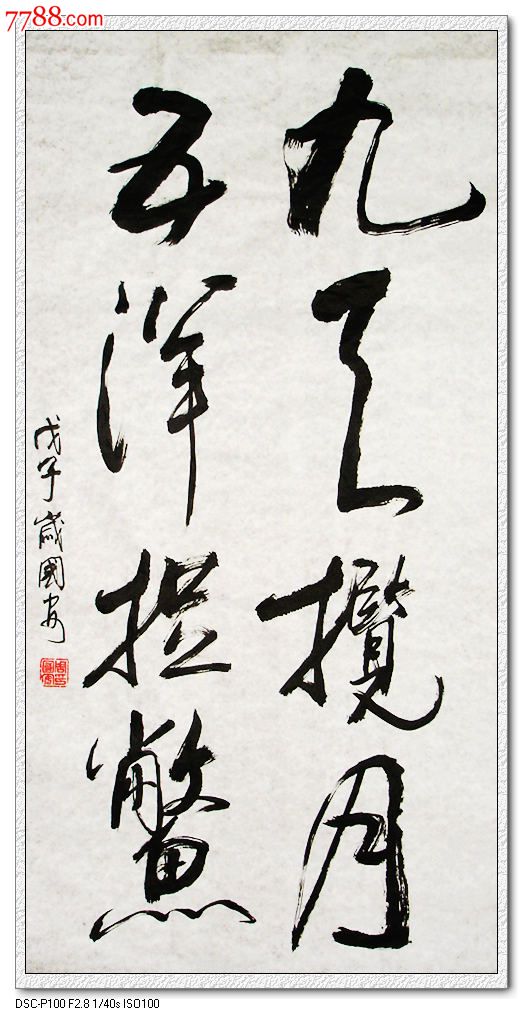 7788.com
九天攬月
五洋捉鱉
戊子歲國安
DSC-P100 F2.8 1/40s ISO100